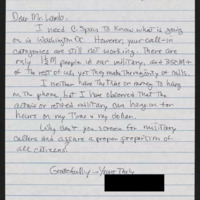 Dear Mr. Lamb.
I need C-Span to know what is going
on in Washington DC. However, your call-in
categories are still not working. There are
only 1½ M people in our military, and 350M+
of the rest of us, yet they make the majority of calls.
I neither have the time or money to hang
on the phone, but I have observed that the
active or retired military can hang on for
hours on my time & my dollar.
Why don't you screen for military
callers and assure a proper proportion of
all citizens.
Gratefully - Yours Truly